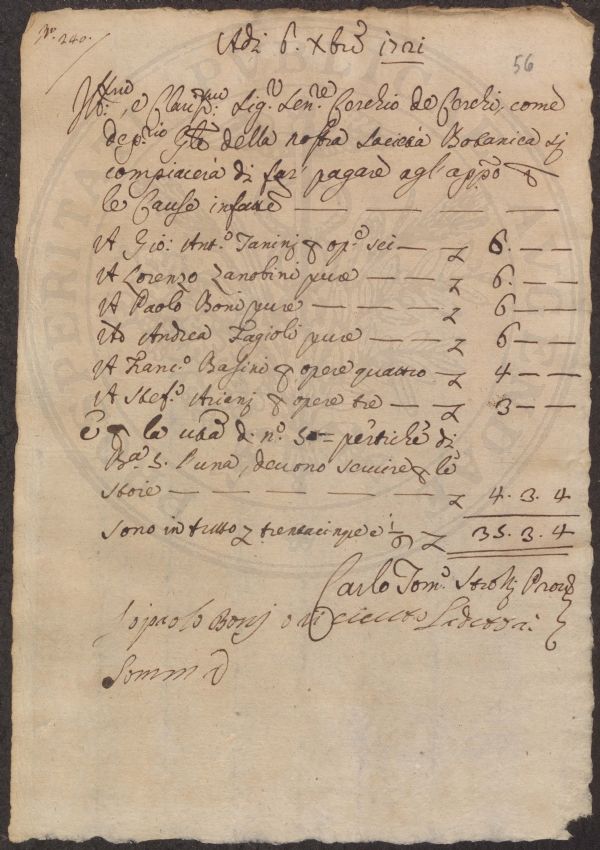 No. 240.
56
Adi 6. Xbre 1721
Ill:mo, e Clariss:mo Sig:r Sen:re Cerchio de Cerchi, come
dep:rio Gle della nostra Società Botanica si
compiacerà di far' pagare agl'appo p
le Cause infatte
A Gio: Ant.o Tanini p op.e sei — — £ 6. — —
A Lorenzo Zanobini pure — — — £ 6. — —
A Paolo Boni pure — — — — £ 6 — —
Ad Andrea Fagioli pure — — — £ 6 — —
A Franc.o Basini p opere quattro — £ 4 — —
A Stef.o Arieni p opere tre — — £ 3 — —
E p la di n.o 50 = pertiche di
B.a S. l'una, devono servire p le
stoie — — — — — — — £ 4. 3. 4
Sono in tutto £ trentacinque e 1/6 £ 35. 3. 4
Carlo Tom.o Strozzi Prov.
Io paolo Bonj o riceuto La detta
Somma